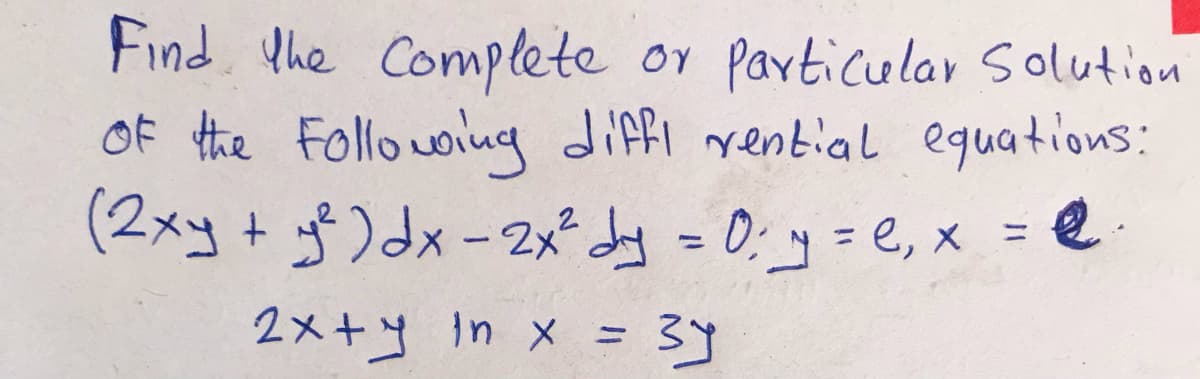 Find the Complete or Particular Solution
OF the Following diffi rential equations:
(2xy + y²)dx - 2x² dy = 0; y = e, x = e.
2x + y In x = 3y